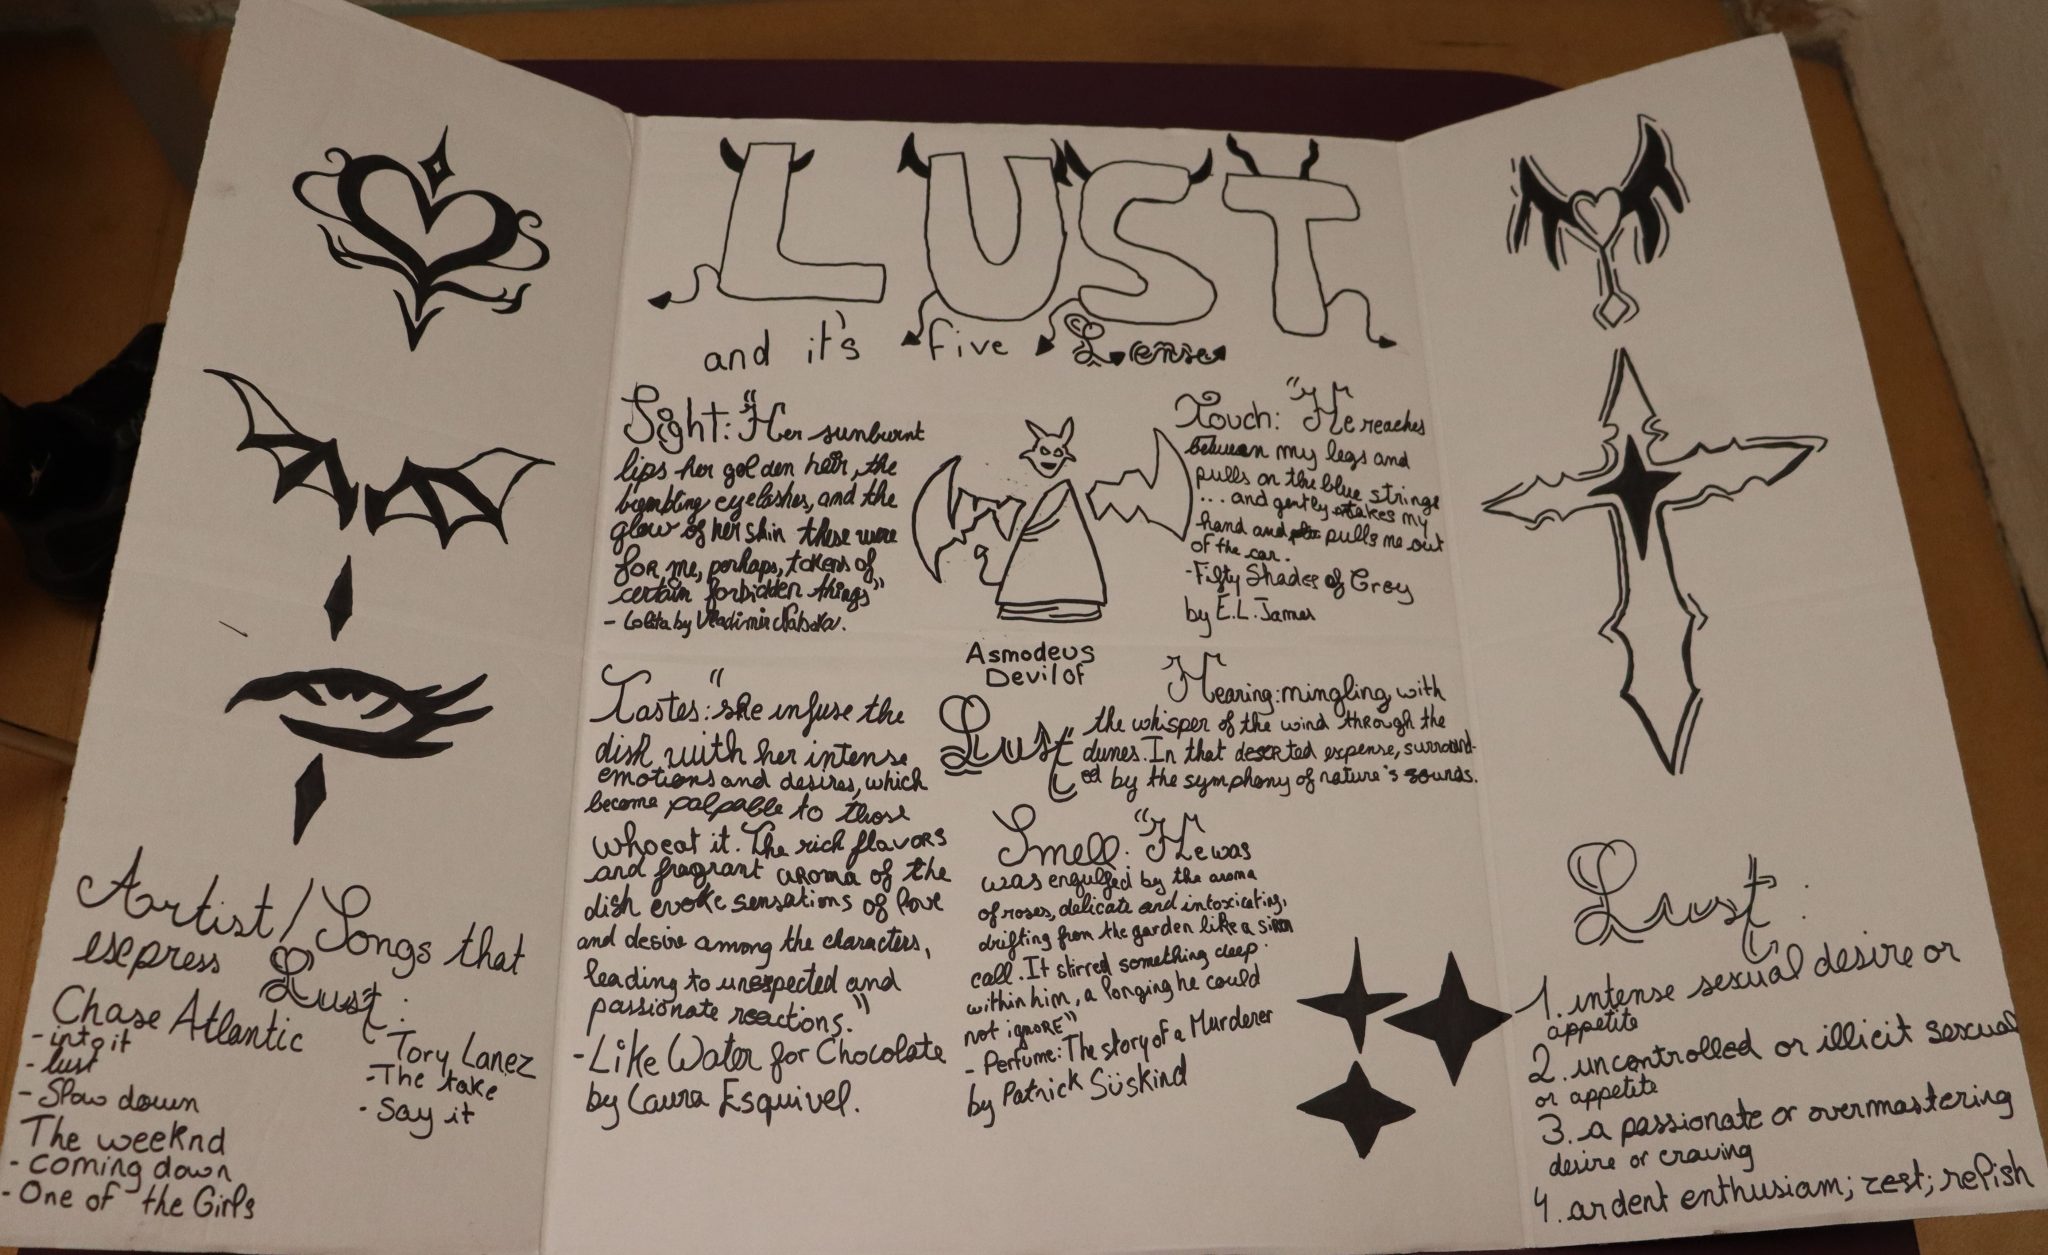 LUST
and it's five Lense
Sight: "Her sunburnt
lips her golden hair, the
trembling eyelashes, and the
glow of her skin these were
for me, perhaps, tokens of
certain forbidden things"
- Lolita by Vladimir Nabokov.
Touch: "He reaches
between my legs and
pulls on the blue strings
... and gently takes my
hand and pulls me out
of the car.
- Fifty Shades of Grey
by E.L. James
Asmodeus
Devil of
Lust
Tastes: "she infuse the
dish with her intense
emotions and desires, which
become palpable to those
who eat it. The rich flavors
and fragrant aroma of the
dish evoke sensations of love
and desire among the characters,
leading to unexpected and
passionate reactions."
- Like Water for Chocolate
by Laura Esquivel.
Hearing: mingling with
"the whisper of the wind through the
dunes. In that deserted expense, surround-
ed by the symphony of nature's sounds.
Smell: "He was
was engulfed by the aroma
of roses, delicate and intoxicating,
drifting from the garden like a siren
call. It stirred something deep
within him, a longing he could
not ignore"
- Perfume: The story of a Murderer
by Patrick Süskind
Artist/Songs that
express Lust:
Chase Atlantic
- into it
- lust
- Slow down
The weeknd
- coming down
- One of the Girls
Tory Lanez
- The take
- Say it
Lust:
1. intense sexual desire or
appetite
2. uncontrolled or illicit sexual
or appetite
3. a passionate or overmastering
desire or craving
4. ardent enthusiam; zest; relish